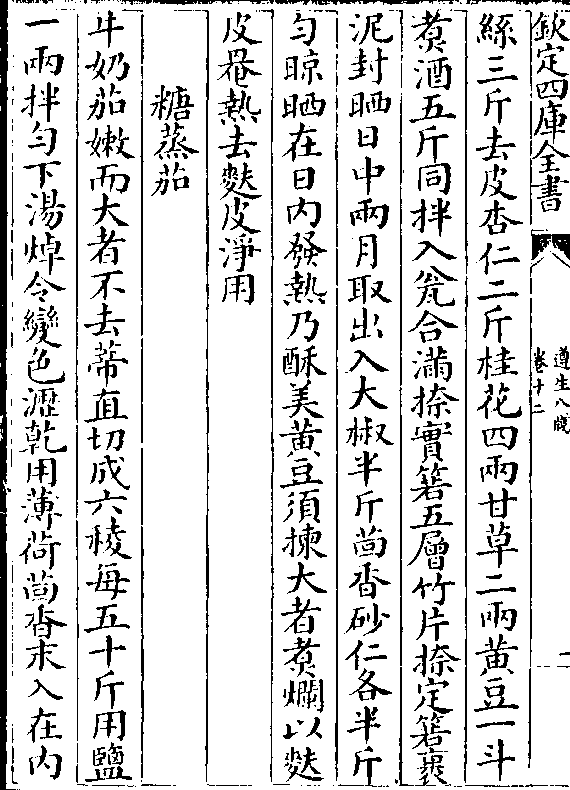 欽定四庫全書
遵生八牋
卷十二
絲三斤去皮杏仁二斤桂花四兩甘草二兩黄豆一斗
煑酒五斤同拌入瓮合滿捺實箬五層竹片捺定箬裹
泥封晒日中兩月取出入大椒半斤茴香砂仁各半斤
匀晾晒在日内發熱乃酥美黄豆須揀大者煑爛以麩
皮罨熱去麩皮淨用
糖蒸茄
牛奶茄嫩而大者不去蒂直切成六稜每五十斤用鹽
一兩拌匀下湯焯令變色瀝乾用薄荷茴香末入在内